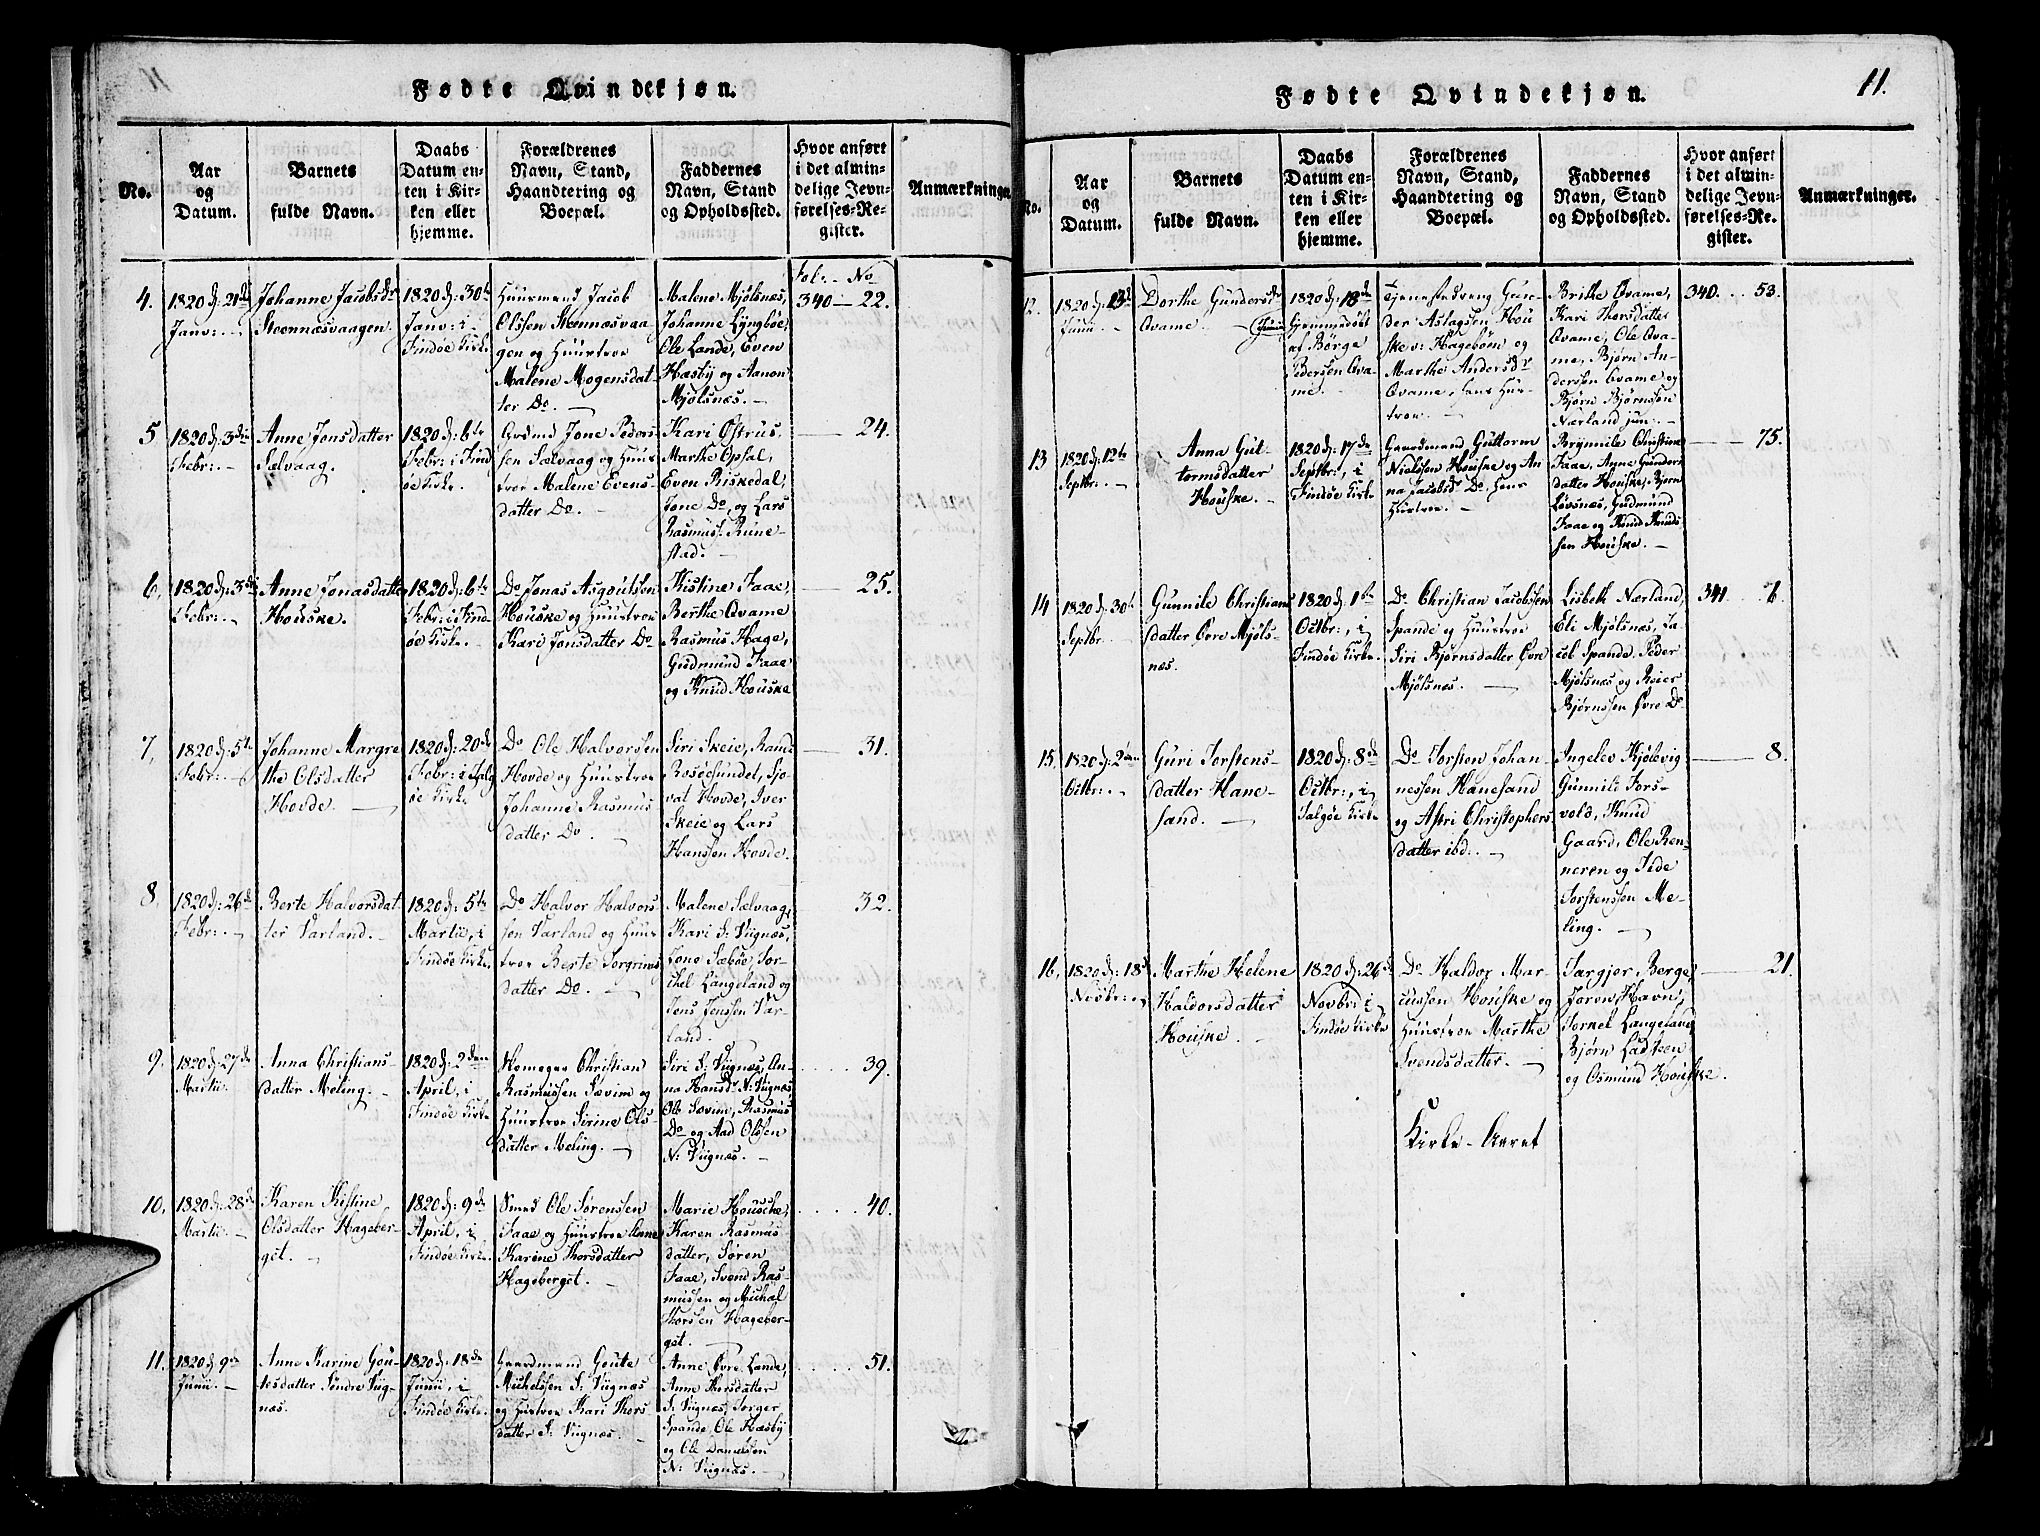 Fødte Qvindekjøn.
No.
Aar
og
Datum.
Barnets
fulde Navn.
Daabs
Datum en-
ten i Kir-
ken eller
hjemme.
Forældrenes
Navn, Stand,
Haandtering og
Boepæl.
Faddernes
Navn, Stand
og Opholdssted.
Hvor anført
i det almin-
delige Jevn-
førelses-Re-
gister.
Anmærkninger
Fol. No
4.
1820 d: 21de
Janv: -
Johanne Jacobsdr
Steennæsvaagen
1820 d: 30te
Janv: i
Findøe Kirke
Huusmand Jacob
Olssen Steennæsvaa
gen og Huustroe
Malene Mogensdat-
ter Do. -
Malene Mjølsnæs,
Johanne Lyngbøe,
Ole Lande, Even
Hæsby og Aanon
Mjølsnæs. -
340 - 22.
5
1820 d: 3die
Febr: -
Anne Jonsdatter
Sælvaag.
1820 d: 6te
Febr: i Find
øe Kirke.
Grdmd Jone Peders-
sen Sælvaag og Huus
troe Malene Evens-
datter Do. -
Kari Østrus,
Marthe Opsal,
Even Riskedal,
Jone Do, og Lars
Rasmuss. Rune-
stad. -
24.
6.
1820 d: 3die
Febr: -
Anne Jonasdatter
Houske.
1820 d: 6te
Febr: i Find
øe Kirke.
Do Jonas Asgoutsen
Houske og Huustroe
Kari Jonsdatter Do
Kistine Faae,
Berthe Qvame
Rasmus Hage,
Gudmund Faae
og Knud Houske
25.
7.
1820 d: 5te
Febr: -
Johanne Margre
the Olsdatter
Hovde. -
1820 d: 20de
Febr: i Talg
øe Kirke
Do Ole Halvorsen
Hovde og Huustroe
Johanne Rasmus
datter Do. -
Siri Skeie, Rand
Rosøesundet, Sjo
vat Hovde, Iver
Skeie og Lars
Hanssen Hovde.
31.
8.
1820 d: 26de
Febr: -
Berte Halvorsdat
ter Varland. -
1820 d: 5te
Martii, i
Findøe Kirke.
Do Halvor Halvors
sen Varland og Huus
troe Berte Torgrims
datter Do. -
Malene Sælvaag,
Kari S: Viignæs,
Jone Sæbøe, Tor
chel Langeland og
Jens Jenssen Var
land.
32.
9.
1820 d: 27de
Martii.
Anna Christians
datter Meling. -
1820 d: 2den
April, i
Findøe Kirke
Rasmussen Sævim og
Huustroe Sirine Ols
datter Meling. -
Siri S: Viignæs, An
na Hansdr N: Viignæs,
Ole Sævim, Rasmus
Do og Aad Olssen
N: Viignæs. -
39.
10.
1820 d: 28de
Martii. -
Karen Kistine
Olsdatter Hageber-
get. -
1820 d: 9de
April, i
Findøe Kirke.
Smed Ole Sørenssen
Faae og Huustroe Anne
Karine Thorsdatter
Hageberget. -
Marie Housche,
Karen Rasmus
datter, Søren
Faae, Svend Ras-
mussen og Michal
Thorssen Hageber-
get. -
40.
11.
1820 d 9de
Junii. -
Anne Karine Gou-
tesdatter Søndre Viig-
næs.
1820 d: 18de
Junii, i
Findøe Kirke.
Gaardmand Goute
Michelssen S: Viignæs
og Hustroe Kari Thors
datter S: Viignæs. -
Anne Øvre Lande,
Anne Thorsdatter
S: Viignæs, Torger
Spande, Ole Hæsby
og Ole Danielssen
N: Viignæs. -
51.
Fødte Qvindekjøn.
11.
No.
Aar
og
Datum.
Barnets
fulde Navn.
Daabs
Datum en-
ten i Kir-
ken eller
hjemme.
Forældrenes
Navn, Stand,
Haandtering og
Boepæl.
Faddernes
Navn, Stand
og Opholdssted.
Hvor anført
i det almin-
delige Jevn-
førelses-Re-
gister.
Anmærkninger.
12.
1820 d: 13de
Junii. -
Dorthe Gundersdr
Qvame. -
1820 d: 18de
Hjemmedøbt
af Børge
Pedersen Qva-
me.
Tjenestedreng Gun-
der Aslagsen Hou
ske v: Hagebøen og
Marthe Andersdr
Qvame, hans Hus-
troe. -
Brithe Qvame,
Kari Thorsdatter
Qvame, Ole Qva-
me, Bjørn An-
derssen Qvame og
Bjørn Bjørnssen
Nærland jun. -
340. 53.
13
1820 d: 12te
Septbr: -
Anna Gut-
tormsdatter
Houske. -
1820 d: 17de
Septbr:, i
Findøe Kirke
Gaardmand Guttorm
Nielssen Houske og An-
na Jacobsdr Do, hans
Hustroe. -
Brynnile Christine
Faae, Anne Gunders
datter Houske, Bjørn
Løvsnæs, Gudmund
Faae og Knud Knuds
sen Houske. -
75.
14
1820 d: 30te
Septbr.
Gunnile Christians
datter Øvre Mjøls-
næs.
1820 d: 1ste
Octbr:, i
Findøe Kirke.
Do Christian Jacobssen
Spande og Huustroe
Siri Bjørnsdatter Øvre
Mjølsnæs. -
Lisbeth Nærland,
Eli Mjølsnæs, Ja-
cob Spande, Peder
Mjølsnæs og Reier
Bjørnssen Øvre Do
341. 6.
15.
1820 d: 2den
Octbr: -
Guri Torstens-
datter Hane-
sand. -
1820 d: 8de
Octbr:, i
Talgøe Kirke
Do Torsten Johan-
nessen Hanesand
og Astri Christophers
datter ibd. -
Ingelev Kjølevig
Gunnild Tors-
vold, Knud
Gaard, Ole Ren-
neren og Tide
Torstenssen Me-
ling. -
8.
16.
1820 d: 18de
Novbr: -
Marthe Helene
Haldorsdatter
Houske. -
1820 d: 26de
Novbr: i
Findøe Kirke
Do Haldor Mar-
cussen Houske og
Huustroe Marthe
Svendsdatter. -
Targjer Berge,
Joren Havn,
Tornel Langeland
Bjørn Ladsteen
og Osmund Houske.
21.
Kirke-Aaret